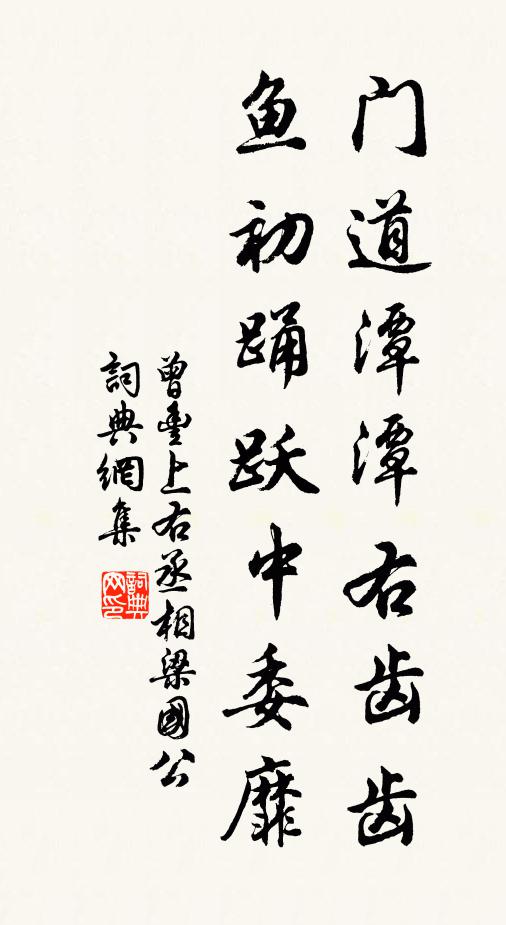 门道潭潭右齿齿
鱼初踊跃中委靡
曾丰上右丞相梁國公
詞典網集
詞典网印